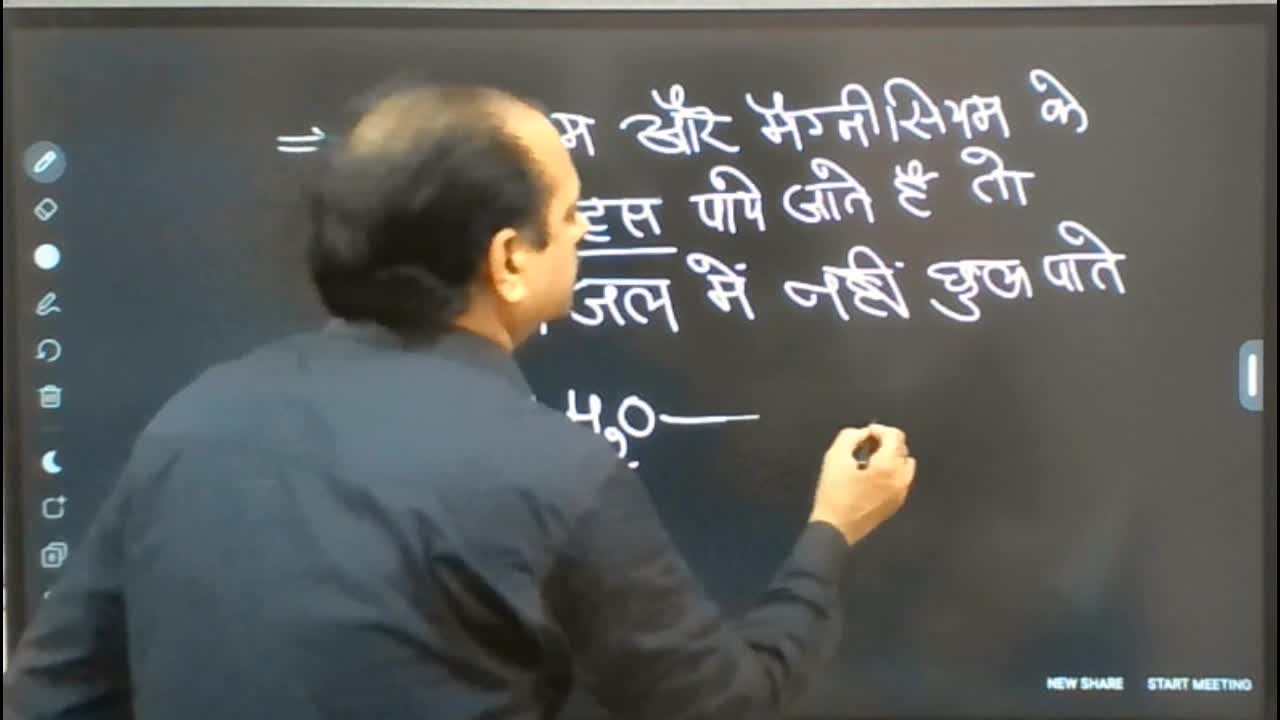 ⇒ म और मैग्नीसियम के
पाये जाते हैं तो
जल में नहीं घुल पाते
H₂O —
NEW SHARE START MEETING